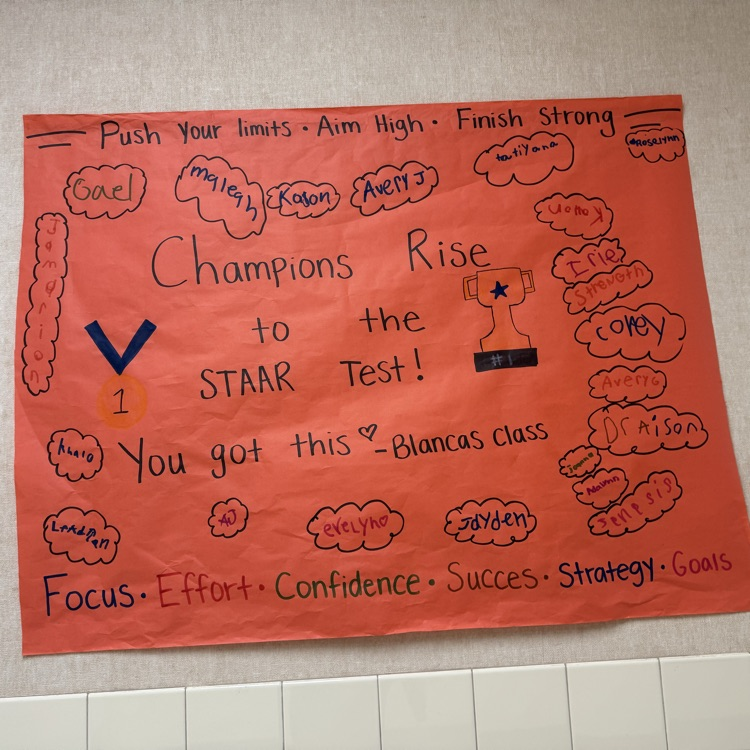 Push Your limits · Aim High · Finish Strong
Roselynn
tatiyana
Gael
maleah
Kason
Avery J
Champions Rise
Irie
Strength
to the
#1
corey
STAAR Test!
1
Avery G
Draison
You got this ♡ -Blancas class
AJ
evelyn
Jayden
Jenesis
Focus · Effort · Confidence · Succes · Strategy · Goals